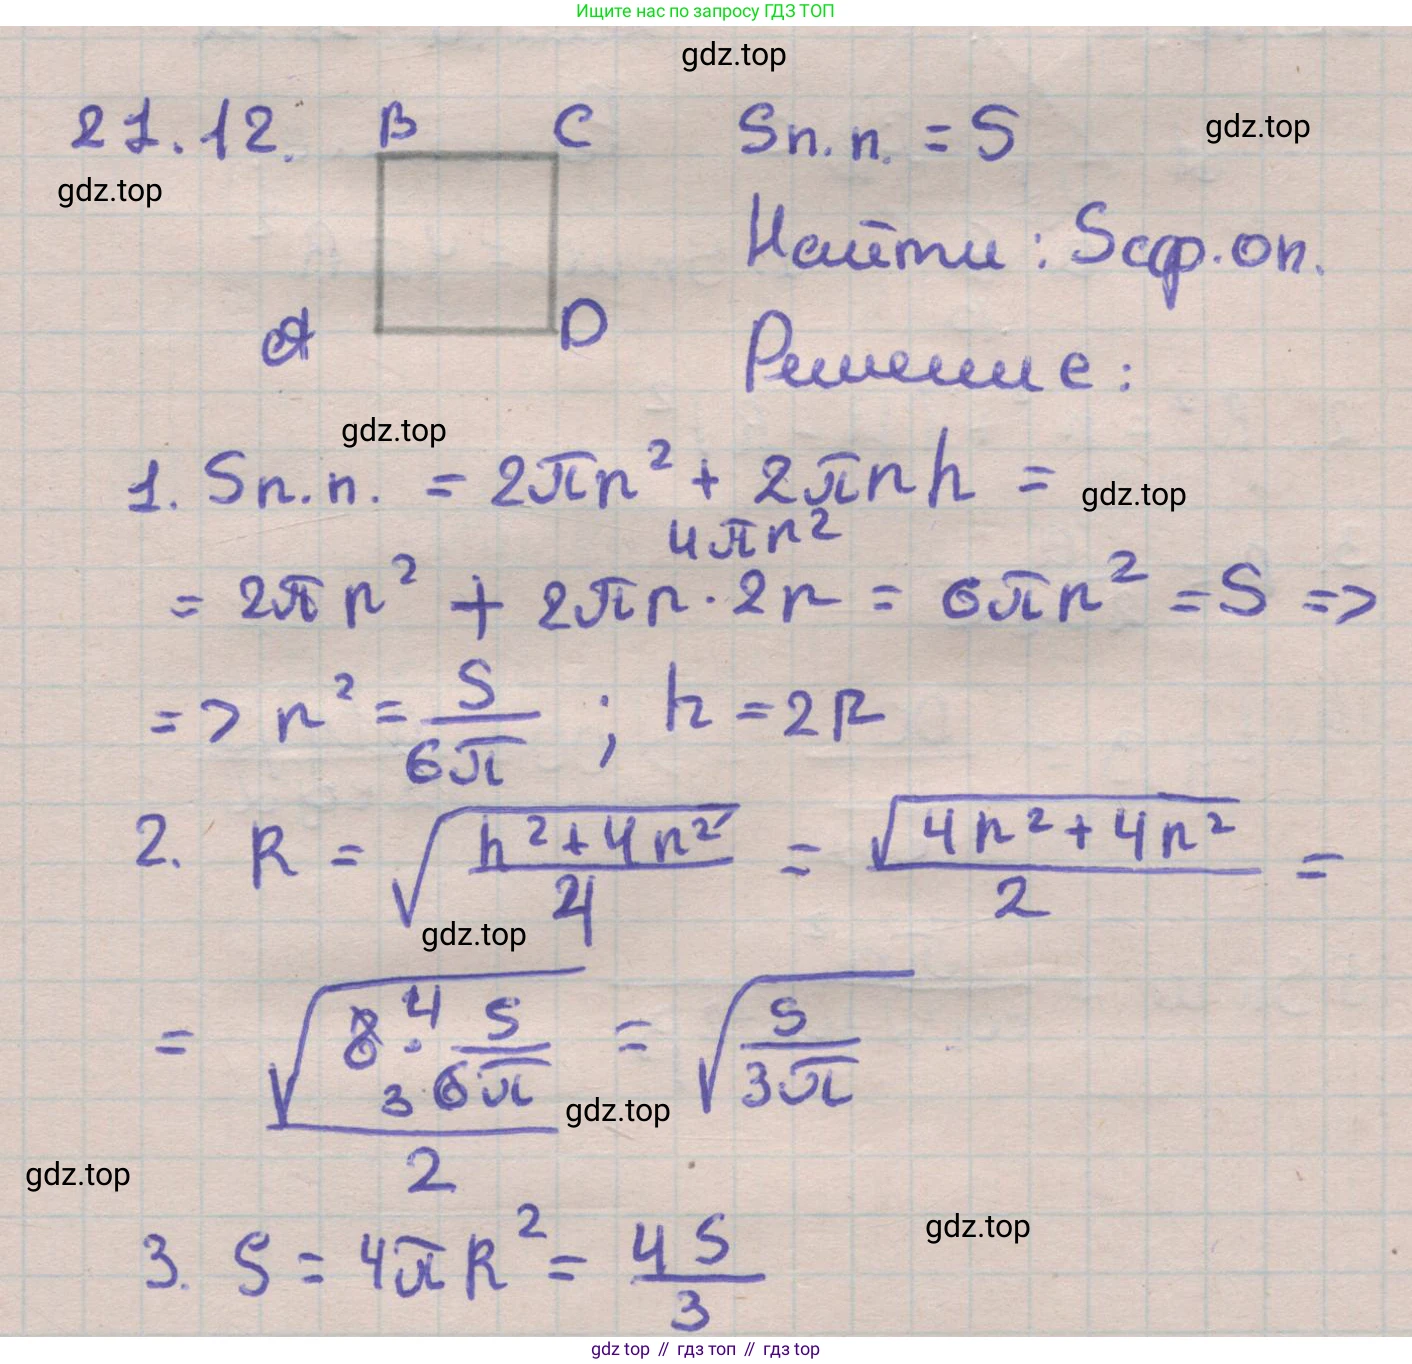 Ищите нас по запросу ГДЗ ТОП
gdz.top
21.12.
B C
Sп.п. = S
gdz.top
gdz.top
Найти: Sсф.оп.
A D
Решение:
gdz.top
1. Sп.п. = 2πr² + 2πrh =
gdz.top
4πr²
= 2πr² + 2πr · 2r = 6πr² = S =>
=> r² = S/6π ; h = 2R
2. R = √((h² + 4r²)/4) = √(4r² + 4r²)/2 =
gdz.top
= √(8 4 · S/3 6π)/2 = √(S/3π)
gdz.top
gdz.top
3. S = 4πR² = 4S/3
gdz.top
gdz top // гдз топ // гдз top